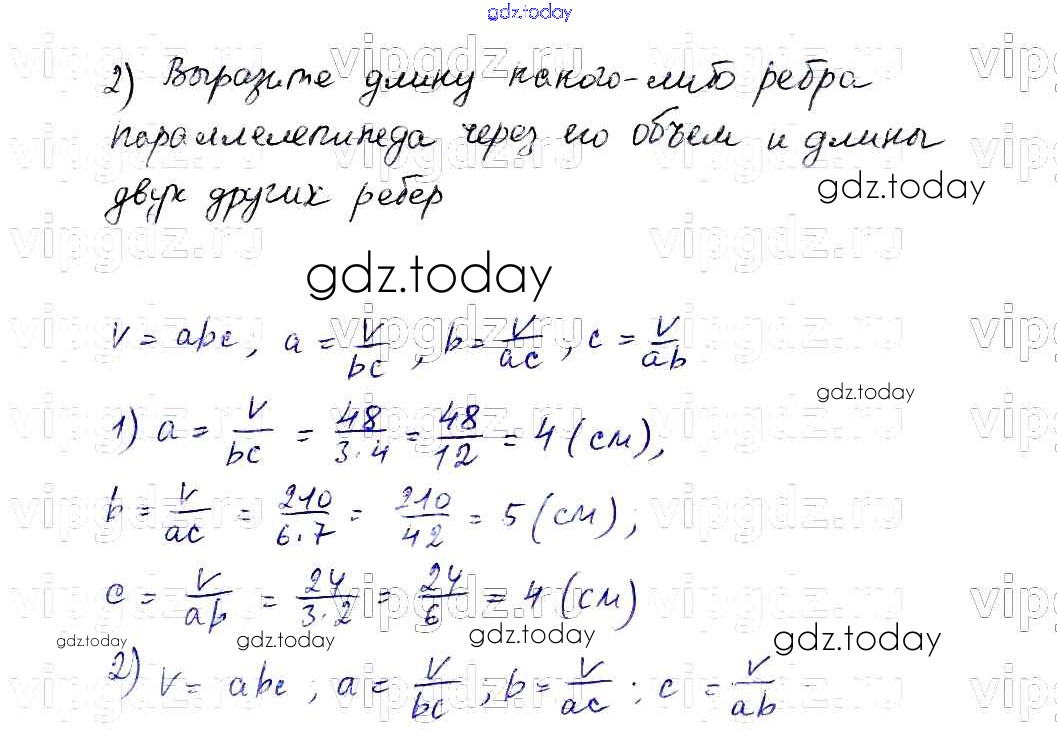 gdz.today
2) Выразите длину какого-либо ребра
параллелепипеда через его объем и длины
двух других ребер
gdz.today
gdz.today
V = abc, a = V/bc, b = V/ac, c = V/ab
gdz.today
1) a = V/bc = 48/3·4 = 48/12 = 4 (см),
b = V/ac = 210/6·7 = 210/42 = 5 (см);
c = V/ab = 24/3·2 = 24/6 = 4 (см)
gdz.today gdz.today gdz.today gdz.today
2) V = abc, a = V/bc, b = V/ac; c = V/ab
vipgdz.ru